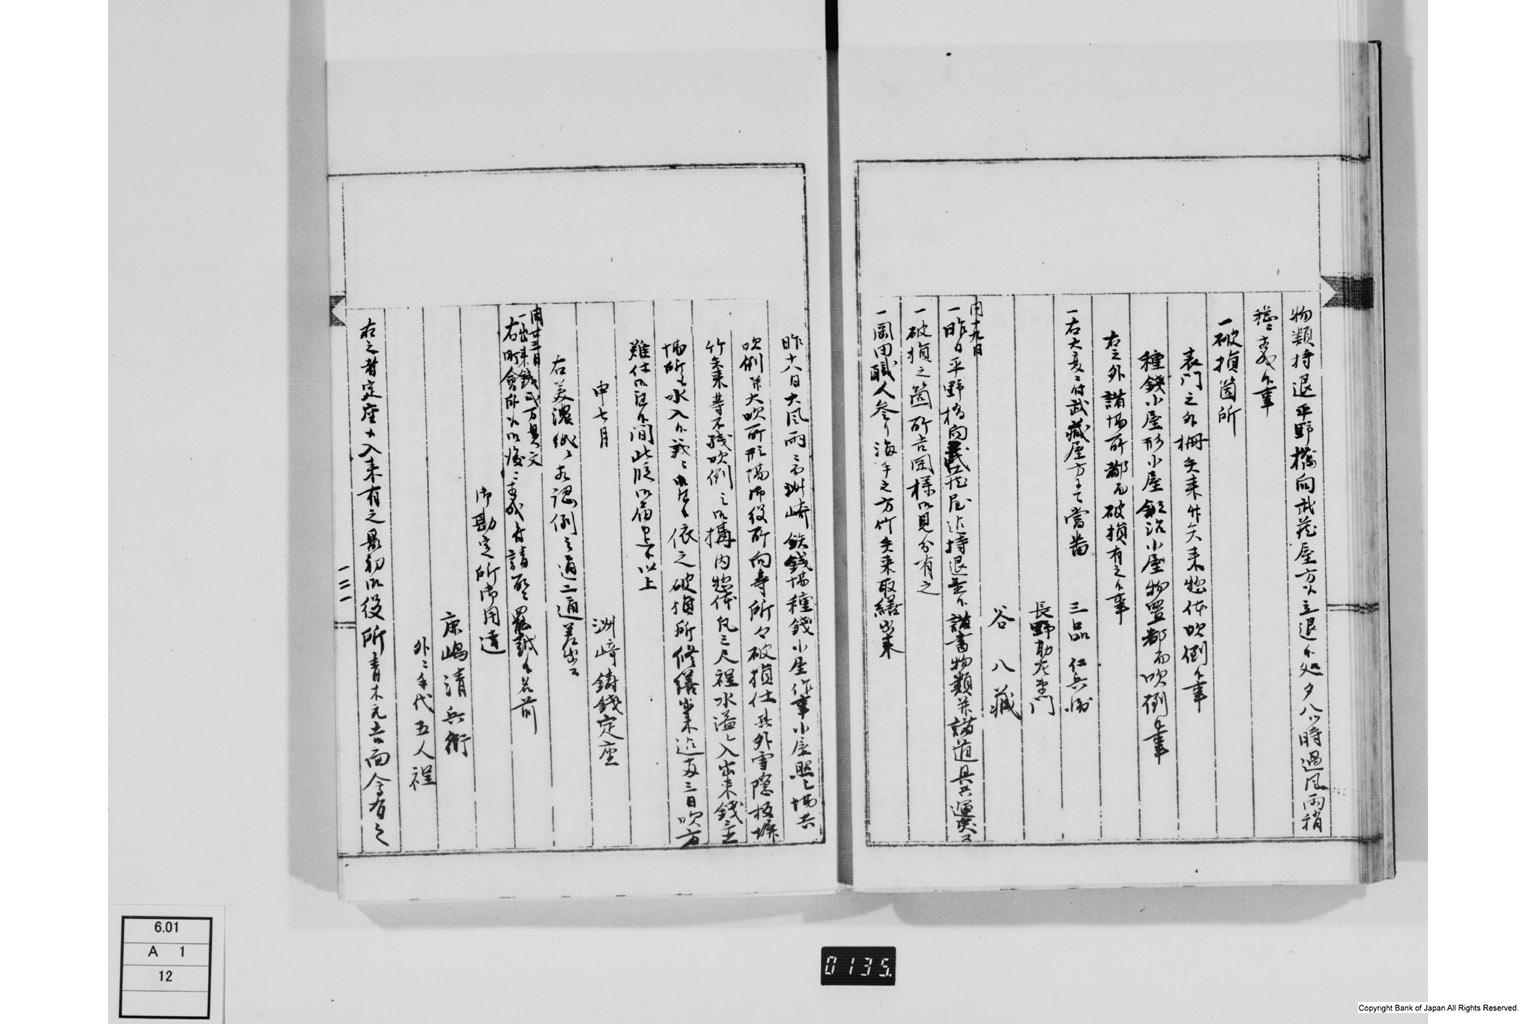 物類持退平野橋向武蔵屋方へ立退候処夕八ツ時過風雨稍
穏ニ相成候事
一破損箇所
表門之外柵矢来竹矢来惣体吹倒候事
種銭小屋形小屋鍛冶小屋物置都而吹倒候事
右之外諸場所都而破損有之候事
一右大変ニ付武蔵屋方ニて當番
三品 仁兵衛
長野勘左衛門
谷 八藏
同十九日
一昨日平野橋向武蔵屋迄持退置候諸書物類并諸道具共運送
一破損之箇所吉岡様御見分有之
一岡田職人参り海手之方竹矢来取繕出来
昨十八日大風雨ニ而洲崎鉄銭場種銭小屋作事小屋照シ場共
吹倒并大吹所形場御役所向寺所々破損仕其外雪隠板塀
竹矢来等不残吹倒シ御構内惣体凡三尺程水溢レ入出来銭主
場所も水入候義ニ御座候依之破損所修繕出来迄両三日吹方
難仕御座候間此段御届申上候以上
申七月
洲崎鋳銭定座
右美濃紙ニ相認例之通二通差出ス
同廿三日
一出来銭弐万貫文
右町會所
御勘定所御用達
康嶋清兵衛
外ニ手代五人程
右之者定座江入来有之最初御役所青木元吉面會有之
一二一
6.01
A 1
12
0135.
Copyright Bank of Japan All Rights Reserved.